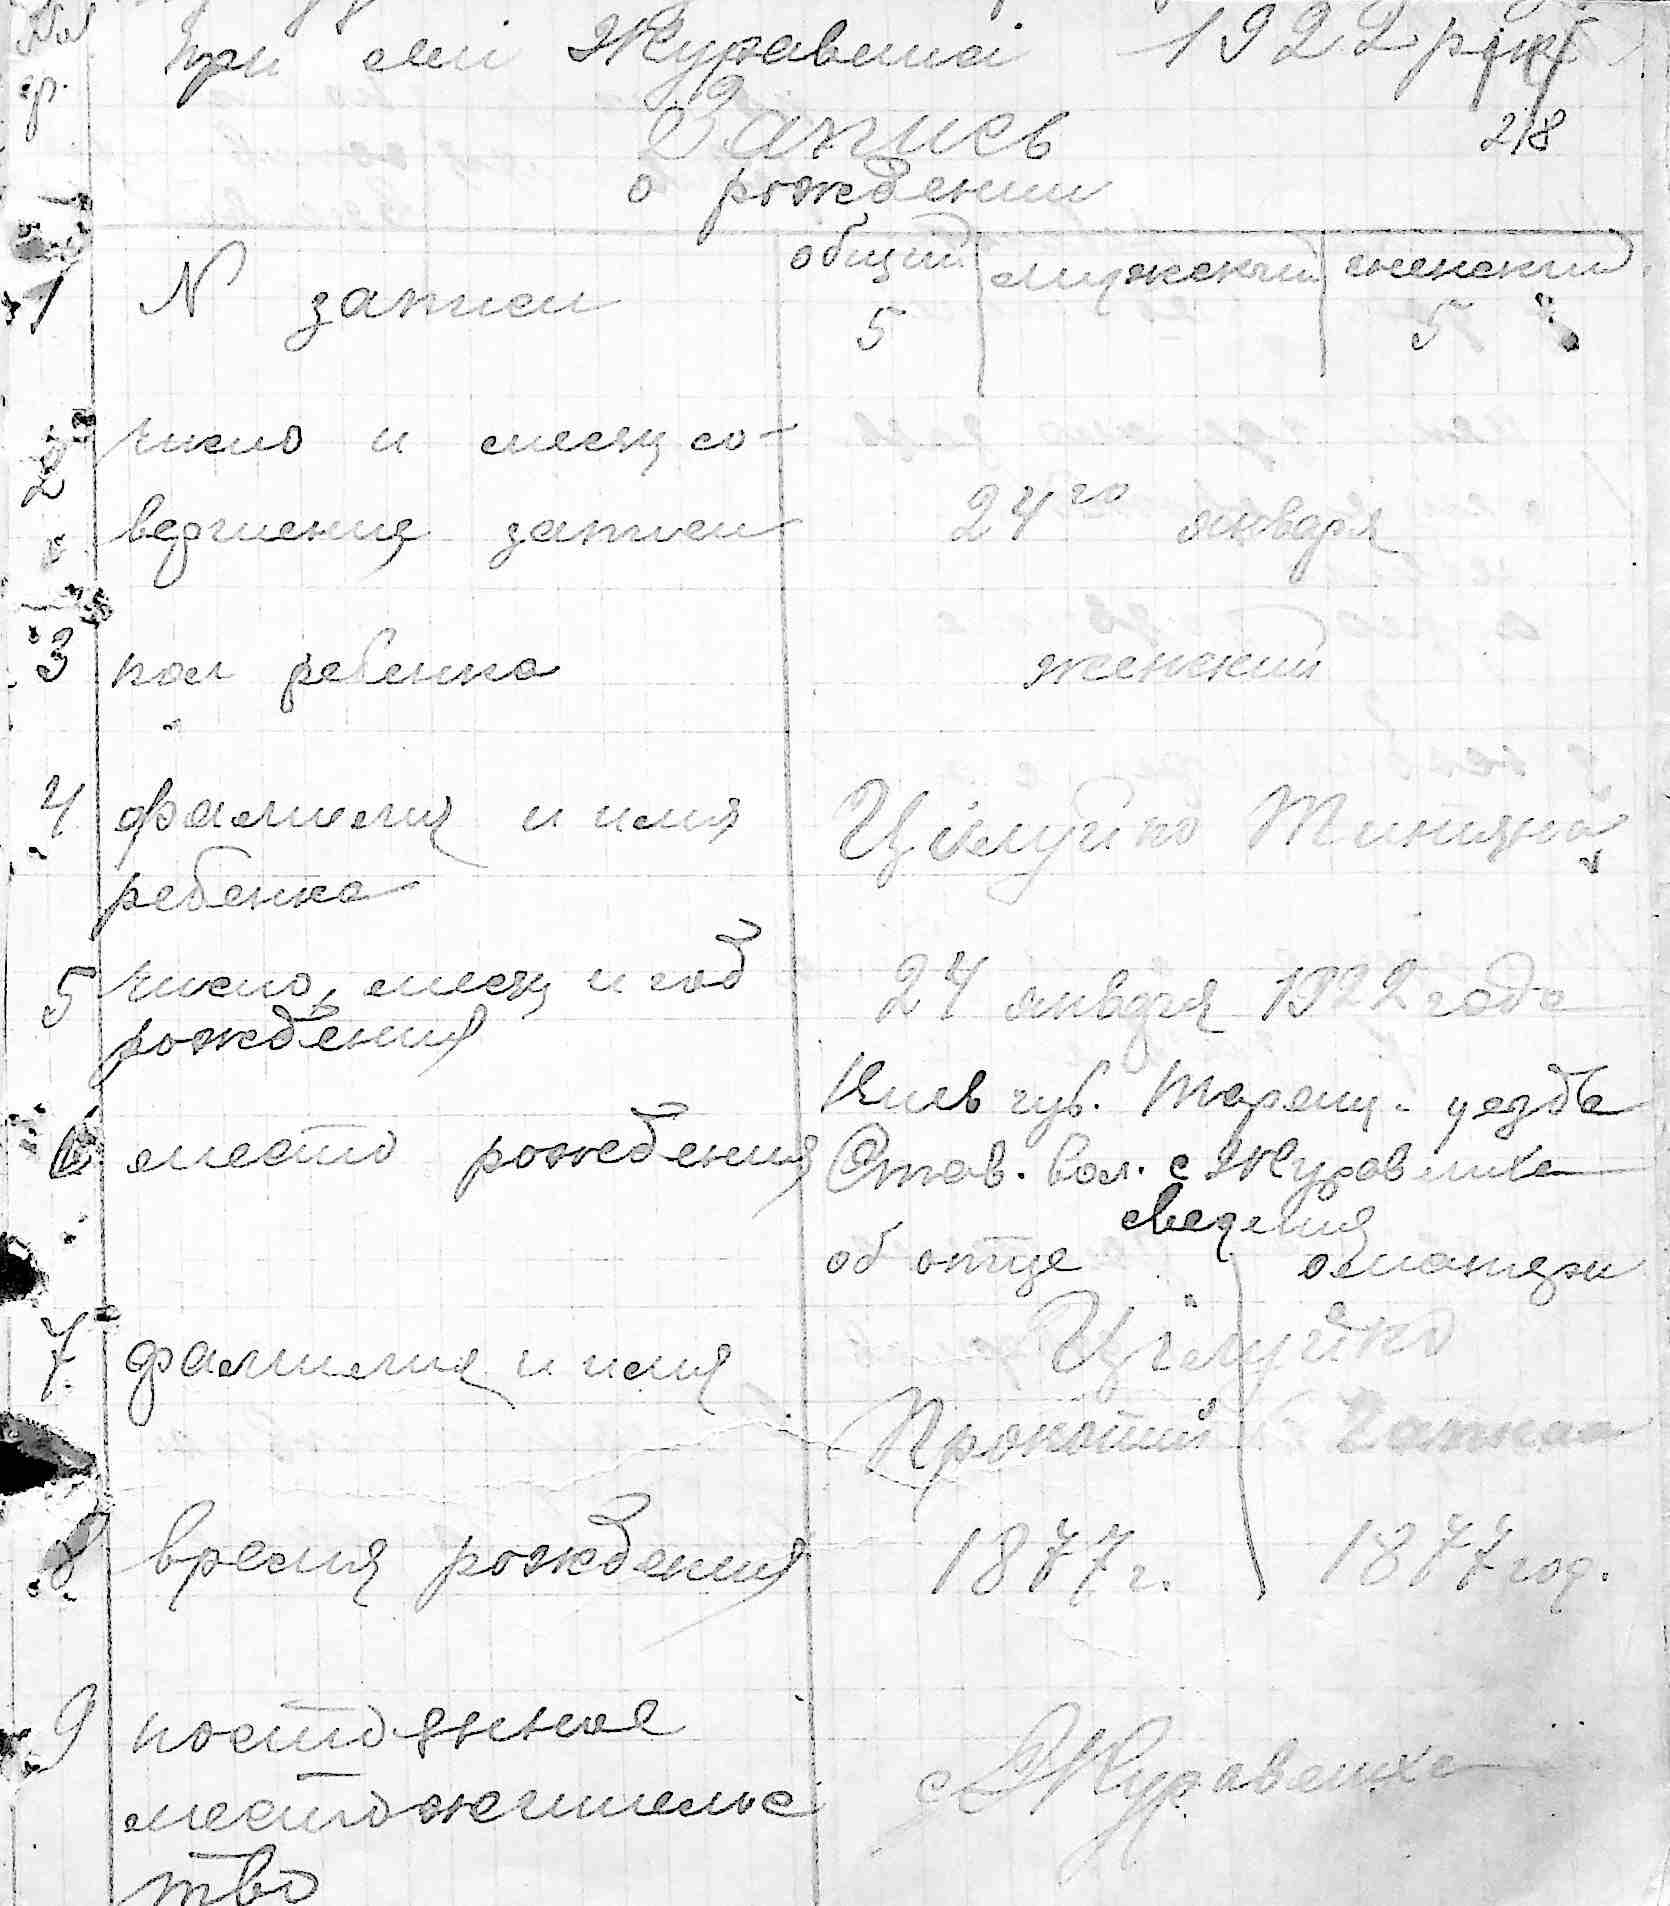 при селі Журавлисі 1922 рік
218
Запись
о рождении
общий мужской женский
1 N записи 5 5
2 число и месяц со-
вершения записи 24го января
3 пол ребенка женский
4 фамилия и имя Цілуйко
ребенка
5 число, месяц и год 24 января 1922 года
рождения
Киев губ. Таращ. уезда
6 место рождения Став. вол. с Журавлиха
сведения
об отце о матери
Цілуйко
7 фамилия и имя
Прокопий
8 время рождения 1877 г. 1877 год.
9 постоянное
местожительс с Журавлиха
тво